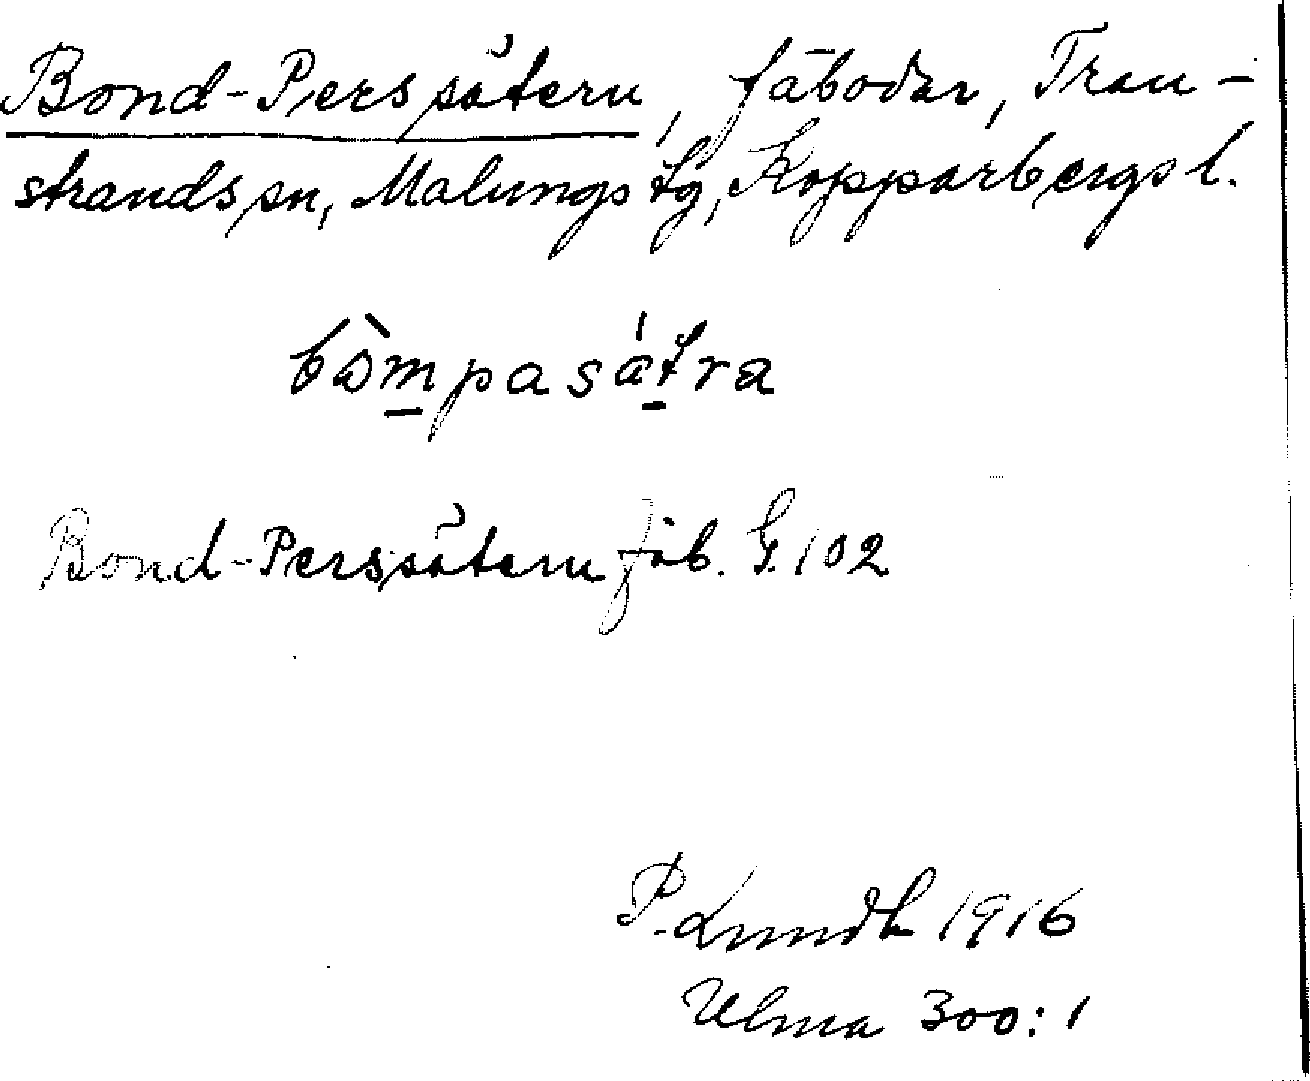 Bond-Perssätern, fäbodar, Tran-
strands sn, Malungs tg, Kopparbergs l.
bòm̱pasát̠ra
Bond-Perssätern fäb. G. 102
P. Lundh 1916
Ulma 300:1